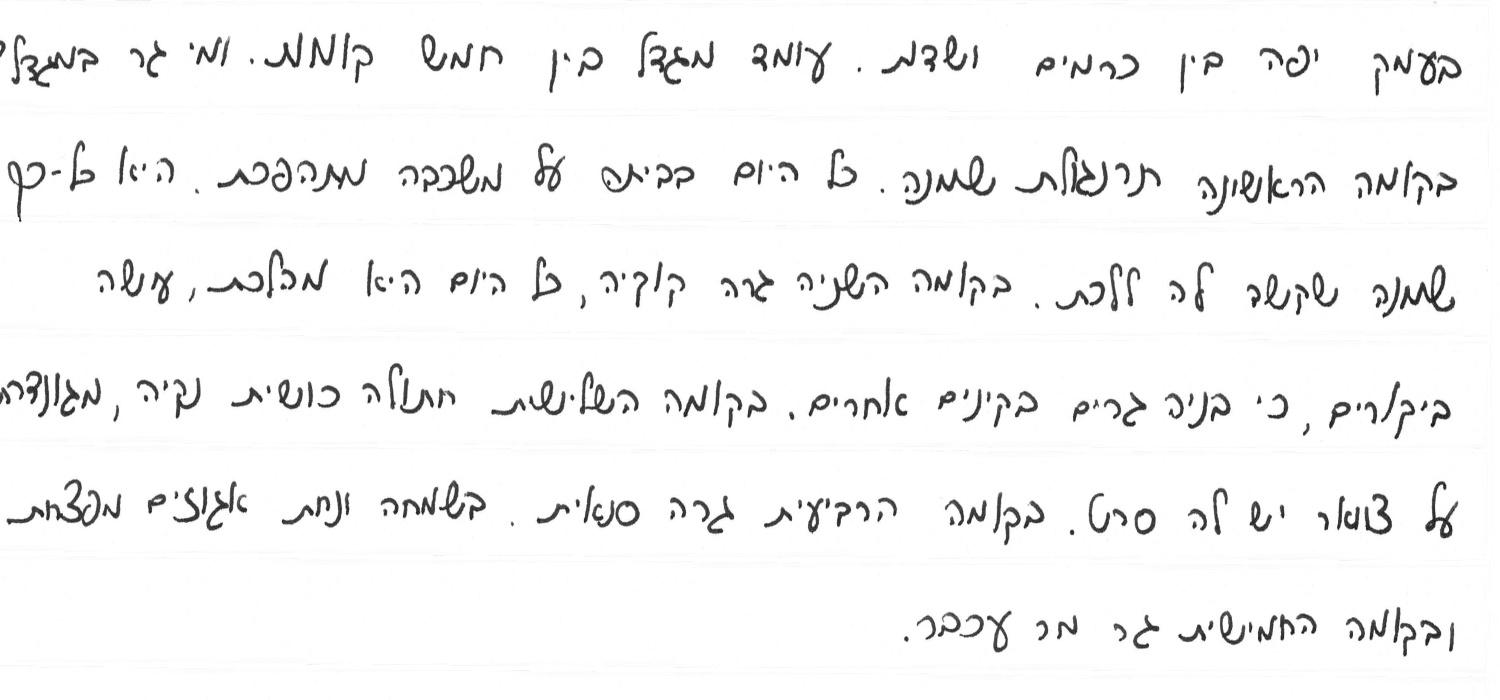 בעמק יפה בין כרמים ושדות. עומד מגדל בין חמש קומות. ומי גר במגדל?
בקומה הראשונה תרנגולת שמנה. כל היום בבית על משכבה מתהפכת. היא כל-כך
שמנה שקשה לה ללכת. בקומה השניה גרה קוקיה, כל היום היא מהלכת, עושה
ביקורים, כי בניה גרים בקינים אחרים. בקומה השלישית חתולה כושית נקיה, מגונדרת
על צוואר יש לה סרט. בקומה הרביעית גרה סנאית. בשמחה ונחת אגוזים מפצחת
ובקומה החמישית גר מר עכבר.